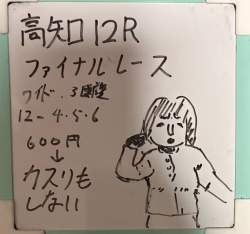 高知 12R
ファイナルレース
ワイド.3頭壁
12-4.5.6
600円
↓
カスリも
しない